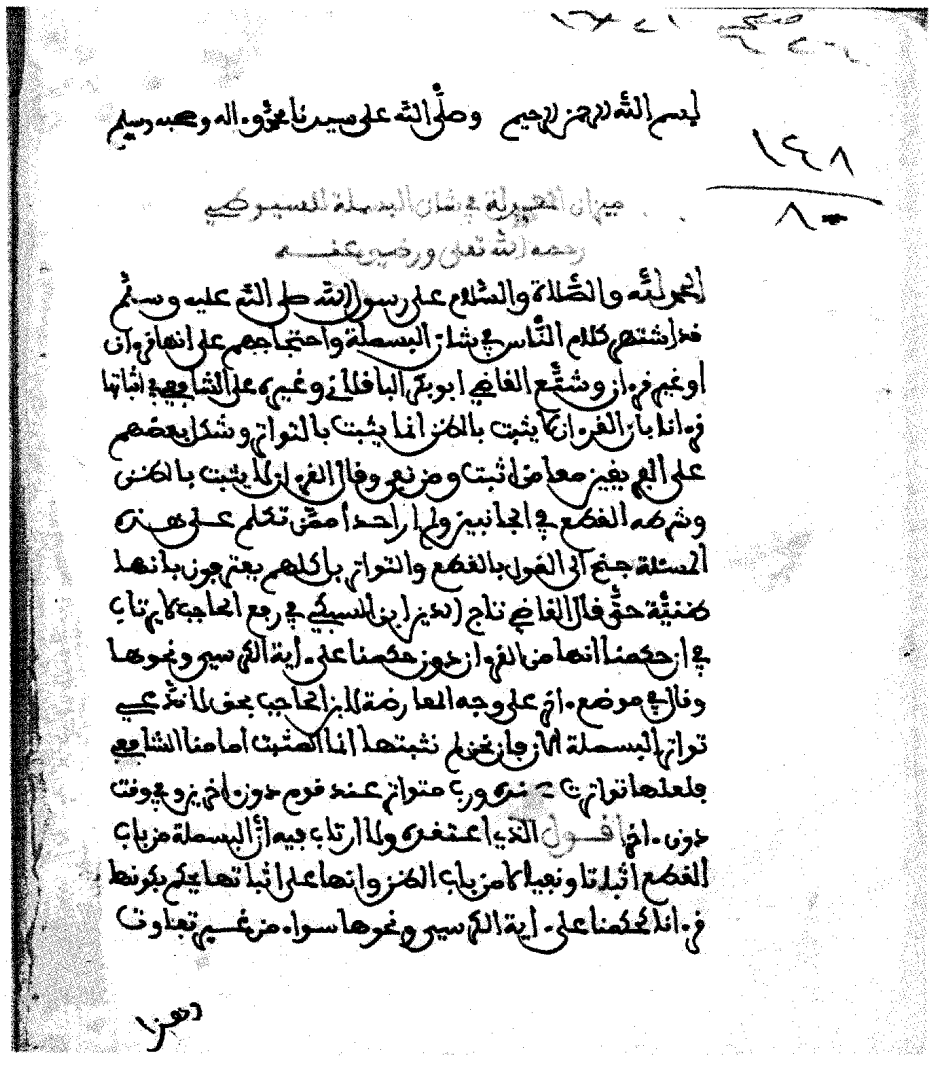 بسم الله الرحمن الرحيم وصلى الله على سيدنا محمد وءاله وصحبه وسلم
١٤٨
٨٠
ميزان المعدلة في شان البسملة للسيوطي
رحمه الله تعلى ورضي عنه
الحمد لله والصلاة والسلام على رسول الله صلى الله عليه وسلم
قد اشتهر كلام الناس في شان البسملة واحتجاجهم على انها قرءان
او غير قرءان وشنع القاضي ابو بكر الباقلاني وغيره على الشافعي في اثباتها
قرءانا بان القرءان لا يثبت بالظن انما يثبت بالتواتر وشكل بعضهم
على الفريقين معا من اثبت ومن نفى وقال القرءان لا يثبت بالظن
وشرطه القطع في الجانبين ولم ار احدا ممن تكلم على هذه
المسئلة جنح الى القول بالقطع والتواتر بل كلهم يعترفون بانها
ظنية حتى قال القاضي تاج الدين ابن السبكي في رفع الحاجب لا يرتاب
في ان حكمنا انها من القرءان دون حكمنا على ءاية الكرسي ونحوها
وقال في موضع ءاخر على وجه المعارضة لابن الحاجب نحن لا ندعي
تواتر البسملة الآن فان نحن لم نثبتها انما المثبت امامنا الشافعي
فلعلها تواترت عنده ورب متواتر عند قوم دون ءاخرين وفي وقت
دون ءاخر اقول الذي اعتقده ولا ارتاب فيه ان البسملة من باب
القطع اثباتا ونفيا لا من باب الظن وانها على اثباتها يحكم بكونها
قرءانا كحكمنا على ءاية الكرسي ونحوها سواء من غير تفاوت
وهذا